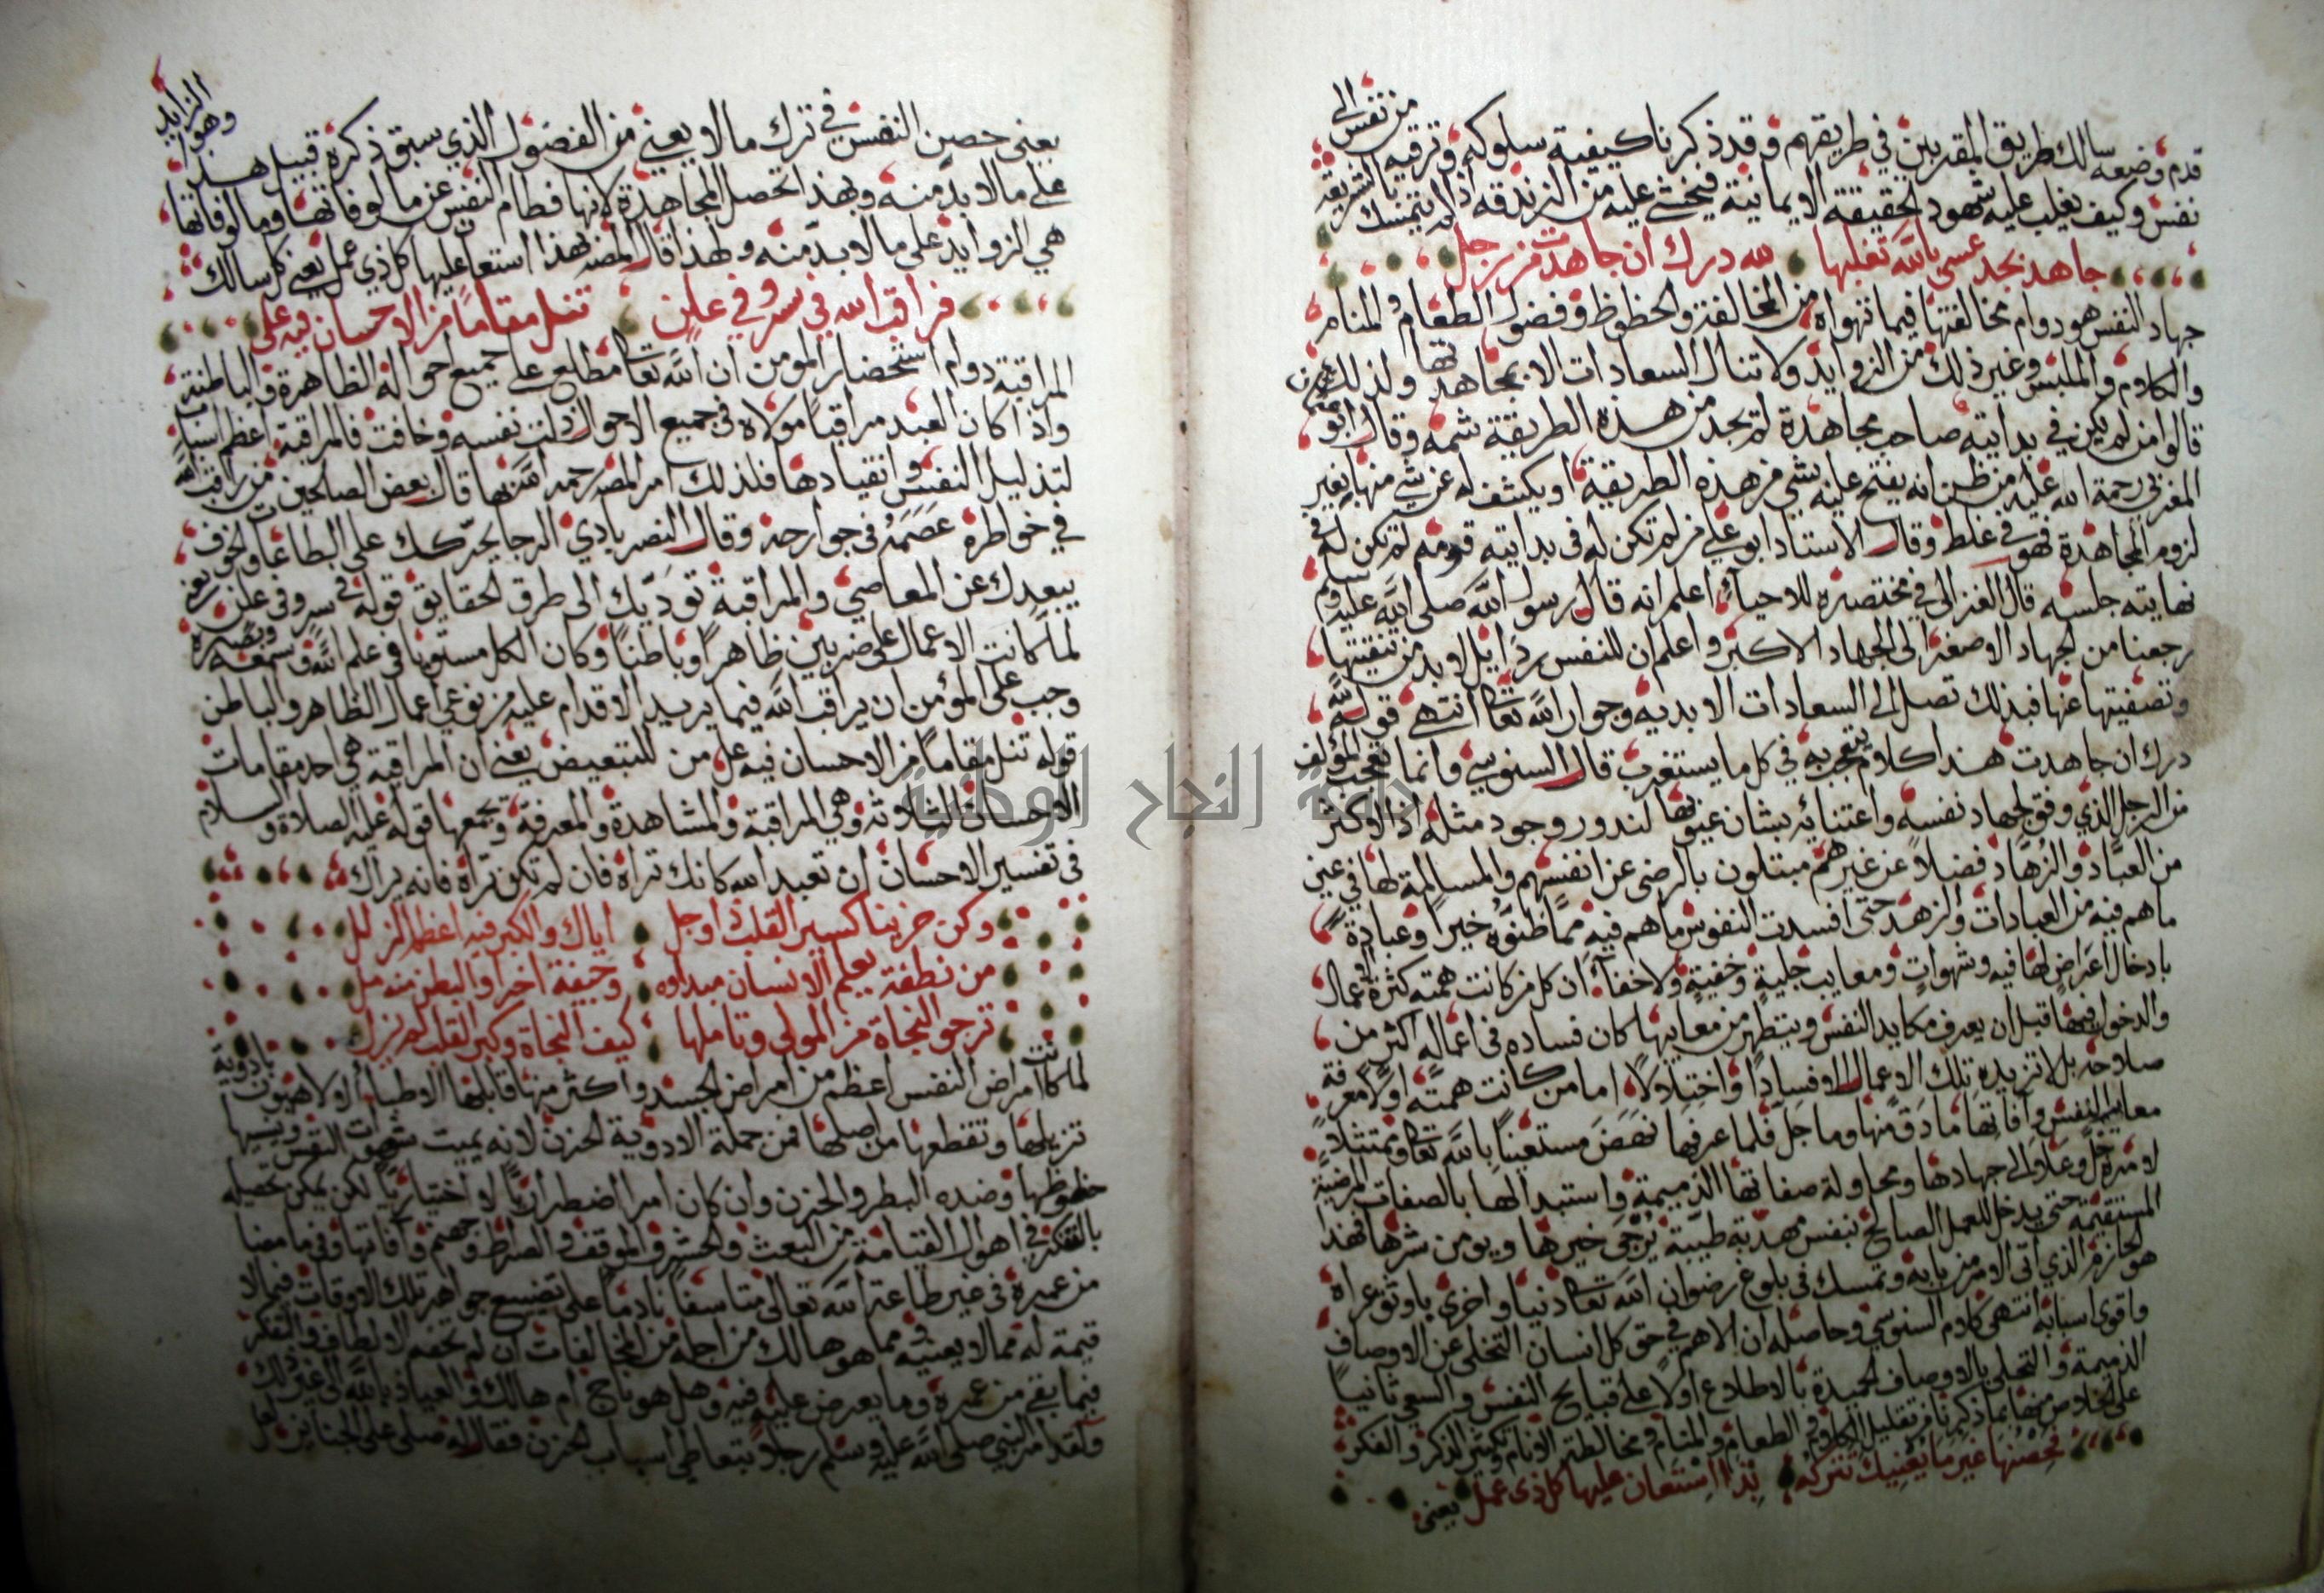 قدم وضعه سالك طريق المقربين في طريقهم وقد ذكرنا كيفية سلوكه وترقيه من نفس الى
نفس وكيف يغلب عليه شهود الحقيقة الايمانية فيخشى عليه من الزندقة اذا لم يتمسك بالشريعة
جاهد بجد عسى بالله تغلبها لله درك ان جاهدت من رجل
جهاد النفس هو دوام مخالفتها فيما تهواه من المخالفة والحظوظ وفضول الطعام والمنام
والكلام والملبس وغير ذلك من الزوايد ولا تنال السعادات الا بمجاهدتها ولذلك
قالوا من لم يكن في بدايته صاحب مجاهدة لم يجد من هذه الطريقة شمه وقال ابو عثمن
المغربي رحمة الله عليه من ظن انه يفتح عليه بشي من هذه الطريقة او يكشف له عن شي منها بغير
لزوم المجاهدة فهو في غلط وقال الاستاد ابو علي من لم تكن له في بدايته قومه لم تكن له في
نهايته جلسه قال الغزالي في مختصره للاحياء اعلم انه قال رسول الله صلى الله عليه وسلم
رجعنا من الجهاد الاصغر الى الجهاد الاكبر واعلم ان للنفس رذايل لا بد من تنقيتها
وتصفيتها عنها فبذلك تصل الى السعادات الابديه وجوار الله تعالى انتهى قوله لله
درك ان جاهدت هذا كلام يتعجب به في كل ما يستغرب قال السنوسي وانما تعجب المؤلف
من الرجل الذي وفق لجهاد نفسه واعتنائه بشان عيوبها لندور وجود مثله اذ الاكثر
من العباد والزهاد فضلا عن غيرهم مبتلون بالرضى عن انفسهم والمسالمة لها في عين
ما هم فيه من العبادات والزهد حتى افسدت النفوس ما هم فيه مما ظنوه خيرا وعبادة
بادخال اغراض لها فيه وشهوات ومعايب جلية وخفية ولا خفاء ان كل من كانت همته كثرة الاعمال
والدخول فيها قبل ان يعرف مكايد النفس ويتطهر من معايبها كان فساده في اعماله اكثر من
صلاحه بل لا تزيده تلك الاعمال الا فسادا واختلالا اما من كانت همته اولا معرفة
معايب النفس وآفاتها ما دق منها وما جل فلما عرفها نهض مستعينا بالله تعالى وممتثلا
لامره جل وعلا الى جهادها ومحاولة صفاتها الذميمة واستبدالها بالصفات المرضية
المستقيمة حتى يدخل للعمل الصالح بنفس مهذبة طيبة يرجى خيرها ويومن شرها فهذا
هو الحازم الذي اتى الامر من بابه وتمسك في بلوغ رضوان الله تعالى دنيا واخرى باوثق عراه
واقوى اسبابه انتهى كلام السنوسي وحاصله ان الاهم في حق كل انسان التخلي عن الاوصاف
الذميمة والتحلي بالاوصاف الحميدة بالاطلاع اولا على قبايح النفس والسعي ثانيا
على الخلاص منها بما ذكرنا من تقليل الكلام والطعام والمنام ومخالطة الانام وتكثير الذكر والفكر
تحصنها غير ما يعنيك تتركه بذا استعان عليها كل ذي عمل يعني
يعني حصين النفس في ترك ما لا يعني من الفضول الذي سبق ذكره قبيل هذا وهو الزايد
على ما لا بد منه وبهذا تحصل المجاهدة لانها فطام النفس عن مالوفاتها ومالوفاتها
هي الزوايد على ما لا بد منه ولهذا قال المصـ بهذا استعان عليها كل ذي عمل يعني كل سالك
فراقب الله في سر وفي علن تنل مقاما من الاحسان فيه علي
المراقبة دوام استحضار المومن ان الله تعالى مطلع على جميع احواله الظاهرة والباطنة
واذا كان العبد مراقبا مولاه في جميع الاحوال ذلت نفسه وخافت فالمراقبة اعظم اسباب
لتذليل النفس وانقيادها فلذلك امر المصـ رحمه الله بها قال بعض الصالحين من راقب الله
في خواطره عصمه في جوارحه وقال النصرباذي الرجا يحركك على الطاعات والخوف
يبعدك عن المعاصي والمراقبة توديك الى طرق الحقايق قوله في سر وفي علن يعني
لما كانت الاعمال على ضربين ظاهرا وباطنا وكان الكل مستويا في علم الله وسمعه وبصره
وجب على المؤمن ان يراقب الله فيما يريد الاقدام عليه من نوعي اعمال الظاهر والباطن
قوله تنل مقاما من الاحسان فيه علي من للتبعيض يعني ان المراقبة هي احد مقامات
الاحسان الثلاثة وهي المراقبة والمشاهدة والمعرفة ويجمعها قوله عليه الصلاة والسلام
في تفسير الاحسان ان تعبد الله كانك تراه فان لم تكن تراه فانه يراك
وكن حزينا كسير القلب ذا وجل اياك والكبر فيه اعظم الزلل
من نطفة يعلم الانسان مبداه وجيفة اخرا والبطن منه مل
ترجو النجاة من المولى وتاملها كيف النجاة وكبر القلب لم يزل
لما كانت امراض النفس اعظم من امراض الجسد واكثر منها قابلها الاطباء اولا هيون بادوية
تزيلها وتقطعها من اصلها فمن جملة الادوية الحزن لانه يميت شهوات النفس وينسيها
حظوظها وضده البطر والحزن وان كان امرا اضطراريا لا اختياريا لكن يمكن تحصيله
بالتفكر في اهوال القيامة من البعث والحشر والموقف والصراط وجهنم وآفاتها وفي ما مضا
من عمره في غير طاعة الله تعالى متاسفا نادما على تضييع جواهر تلك الاوقات فيما لا
قيمة له مما لا يعنيه مما هو هالك من اجله من المخالفات ان لم تحفه الالطاف والتفكر
فيما بقي من عمره وما يعرض عليه فيه وهل هو ناج ام هالك والعياذ بالله الى غير ذلك
ولقد امر النبي صلى الله عليه وسلم رجلا بتعاطي اسباب الحزن فقال له صلى على الجنايز لعل
جامعة النجاح الوطنية